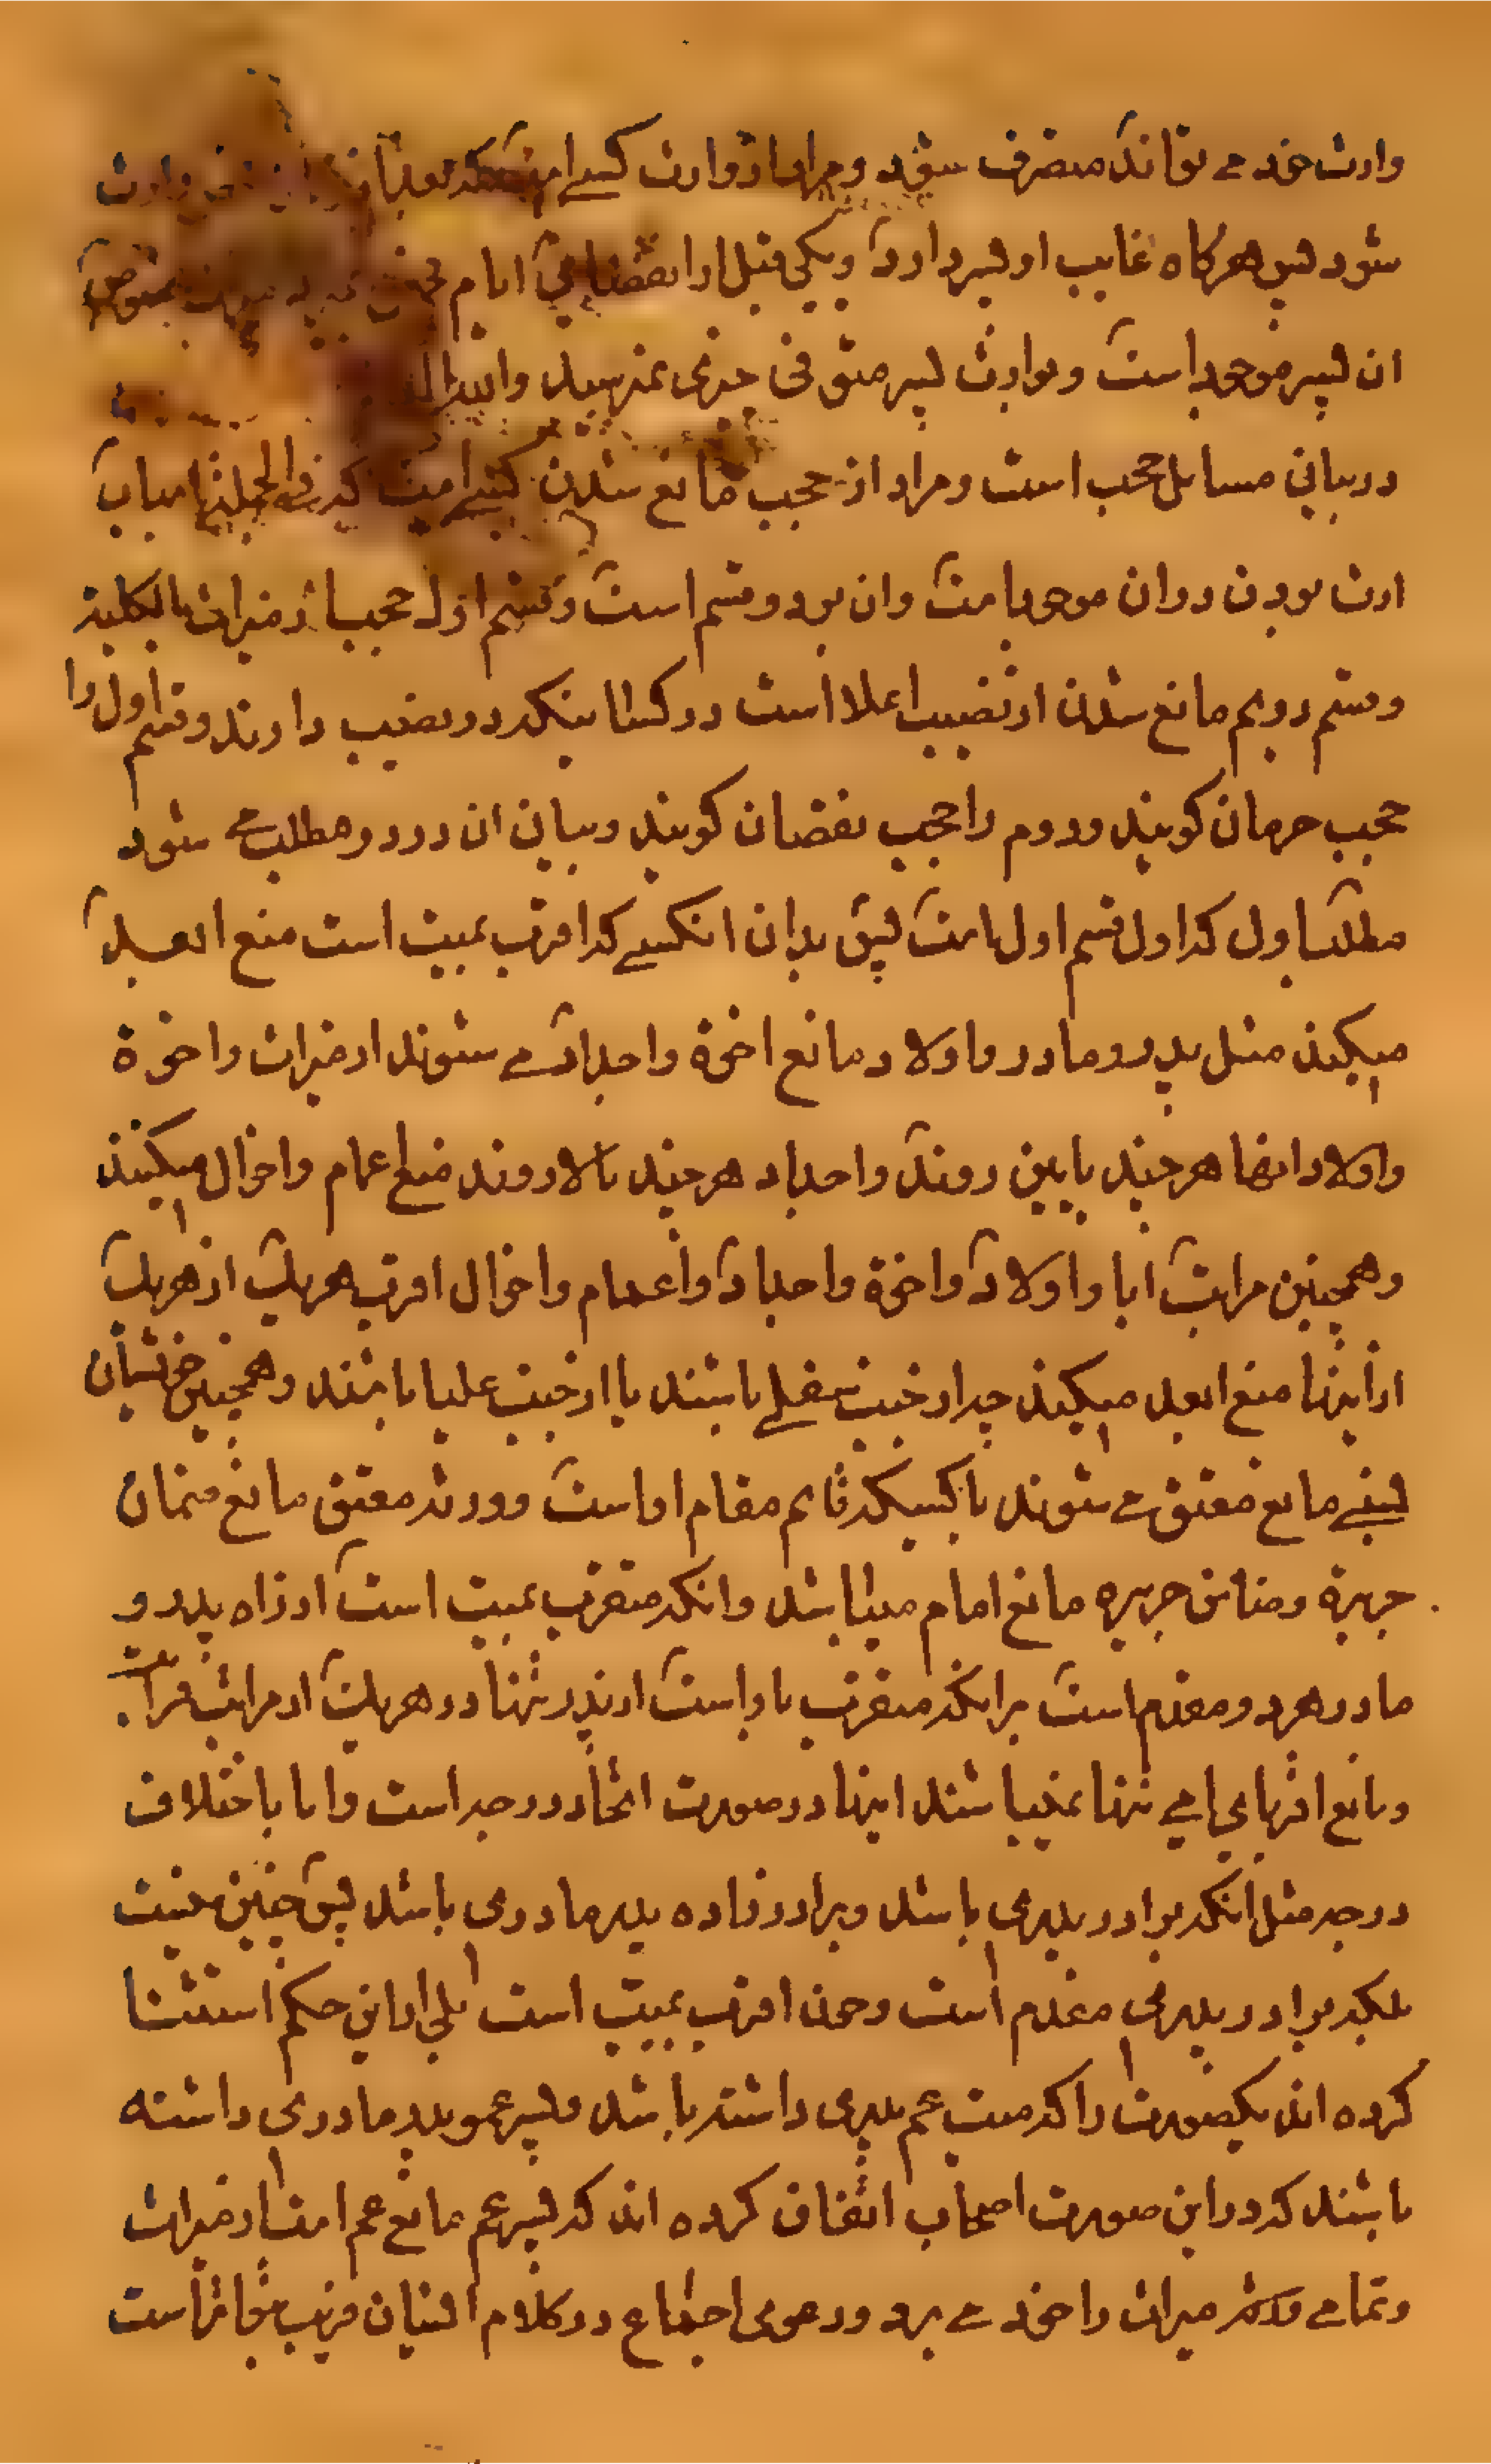 وارث خود می تواند متصرف شود و مراد از وارث کسے است که بعد از وارث
شود پس هرکاه غایب او پسر دارد و یکی قبل از انقضای ایام
ان پسر موجود است و بوارث پسر متوفی چیزی نمیرسد والله
در بیان مسایل حجب است و مراد از حجب مانع شدن کسے است که فی الجمله اسباب
ارث بودن در ان موجود است وان بر دو قسم است و قسم اول حجب از میراث بالکلیه
و قسم دویم مانع شدن از نصیب اعلا است در کسانیکه دو نصیب دارند و قسم اول را
حجب حرمان کویند و دوم را حجب نقصان کویند و بیان ان در دو مطلب مے شود
مطلب اول که اول قسم اول است پس بدان انکسے که اقرب بمیت است منع ابعد
میکند مثل پدر و مادر و اولاد مانع اخوة و اجداد مے شوند از میراث و اخوة
و اولاد انها هر چند پایین روند و اجداد هر چند بالا روند منع اعمام و اخوال میکنند
و همچنین مراتب ابا و اولاد و اخوة و اجداد و اعمام و اخوال اقرب هریک از هریک
از اینها منع ابعد میکند چه از جنب سفلے باشند یا از جنب علیا باشند و همچنین خویشان
نسبے مانع معتق مے شوند یا کسیکه قایم مقام او است و ورثه معتق مانع ضمان
جریرة و ضامن جریره مانع امام میباشد و انکه متقرب بمیت است از راه پدر و
مادر هر دو مقدم است بر انکه متقرب باو است از پدر تنها در هریک از مراتب قرابت
و مانع اقربای امے تنها نمیباشند اینها در صورت اتحاد درجه است و اما با اختلاف
درجه مثل انکه برادر پدری باشد و برادر زاده پدر مادری باشد پس چنین نیست
بلکه برادر پدری مقدم است و چون اقرب بمیت است بلی از این حکم استثنا
کرده اند یکصورت را که میت عم پدری داشته باشد و پسر عمو پدر مادری داشته
باشند که در این صورت اصحاب اتفاق کرده اند که پسر عم مانع عم است از میراث
و تمامے میراث را خود مے برد و دعوی اجماع در کلام ایشان قریب بتواتر است